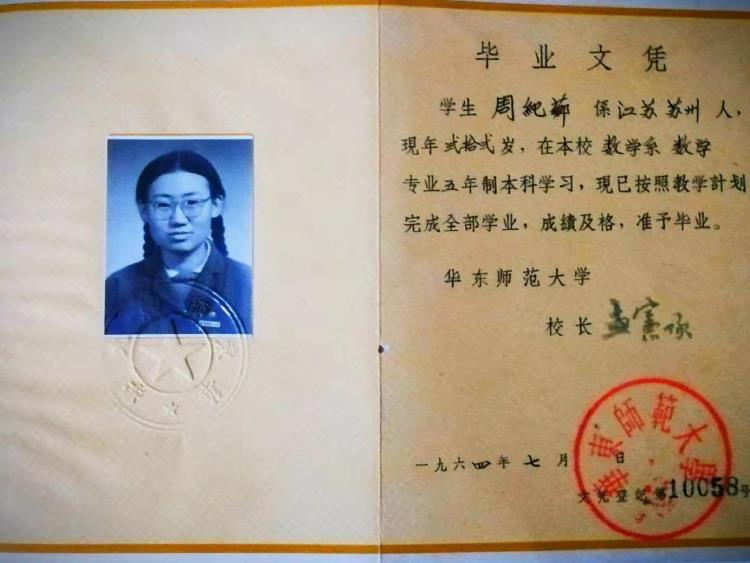 毕业文凭
学生 周紀 係江苏苏州人，
現年 弍拾弍岁，在本校 数学系 数学
专业五年制本科学习，現已按照教学計划
完成全部学业，成績及格，准予毕业。
华东师范大学
校长 孟憲承
一九六四年七月 日
文凭登記第10058号
華東師範大學